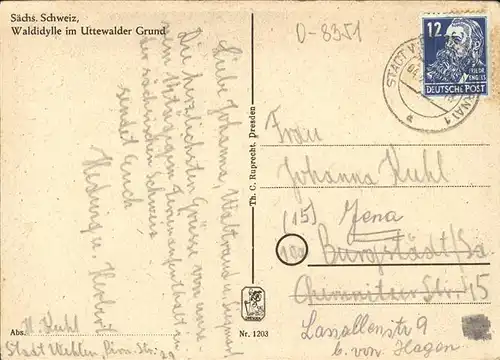 Sächs. Schweiz,
Waldidylle im Uttewalder Grund
Liebe Johanna, Waltraud u. Siegmar!
Die herzlichsten Grüsse von
der sächsischen Schweiz
sendet Euch
Hedwig u. Herbert
Abs. H. Kuhl
Stadt Wehlen, Pirn. Str.
Th. C. Ruprecht, Dresden
Nr. 1203
0-8351
12
FRIEDR. ENGELS
DEUTSCHE POST
STADT
Frau
Johanna Kuhl
(15) Jena
Burgstädt/Sa
Chemnitzer Str. 15
Lassallestr 9
b. von Hagen